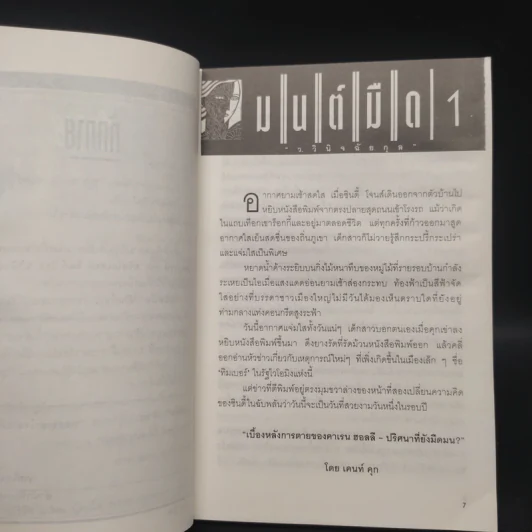 ทักทาย
มนต์มืด 1
"ว.วินิจฉัยกุล"
อากาศยามเช้าสดใส เมื่อซินดี้ โจนส์เดินออกจากตัวบ้านไป
หยิบหนังสือพิมพ์จากตรงปลายสุดถนนเข้าโรงรถ แม้ว่าเกิด
ในแถบเทือกเขาร็อกกี้และอยู่มาตลอดชีวิต แต่ทุกครั้งที่ก้าวออกมาสูด
อากาศใสเย็นสดชื่นของถิ่นภูเขา เด็กสาวก็ไม่วายรู้สึกกระปรี้กระเปร่า
และแจ่มใสเป็นพิเศษ
หยาดน้ำค้างระยิบบนกิ่งไม้หนาทึบของหมู่ไม้ที่รายรอบบ้านกำลัง
ระเหยเป็นไอเมื่อแสงแดดอ่อนยามเช้าส่องกระทบ ท้องฟ้าเป็นสีฟ้าจัด
ใสอย่างที่บรรดาชาวเมืองใหญ่ไม่มีวันได้มองเห็นตราบใดที่ยังอยู่
ท่ามกลางแท่งคอนกรีตสูงระฟ้า
วันนี้อากาศแจ่มใสทั้งวันแน่ๆ เด็กสาวบอกตนเองเมื่อคุกเข่าลง
หยิบหนังสือพิมพ์ขึ้นมา ดึงยางรัดที่รัดม้วนหนังสือพิมพ์ออก แล้วคลี่
ออกอ่านหัวข่าวเกี่ยวกับเหตุการณ์ใหม่ๆ ที่เพิ่งเกิดขึ้นในเมืองเล็ก ๆ ชื่อ
'ทิมเบอร์' ในรัฐไวโอมิงแห่งนี้
แต่ข่าวที่ตีพิมพ์อยู่ตรงมุมขวาล่างของหน้าที่สองเปลี่ยนความคิด
ของซินดี้ในฉับพลันว่าวันนี้จะเป็นวันที่สวยงามวันหนึ่งในรอบปี
"เบื้องหลังการตายของคาเรน ฮอลลี - ปริศนาที่ยังมืดมน?"
โดย เคนท์ คุก
7